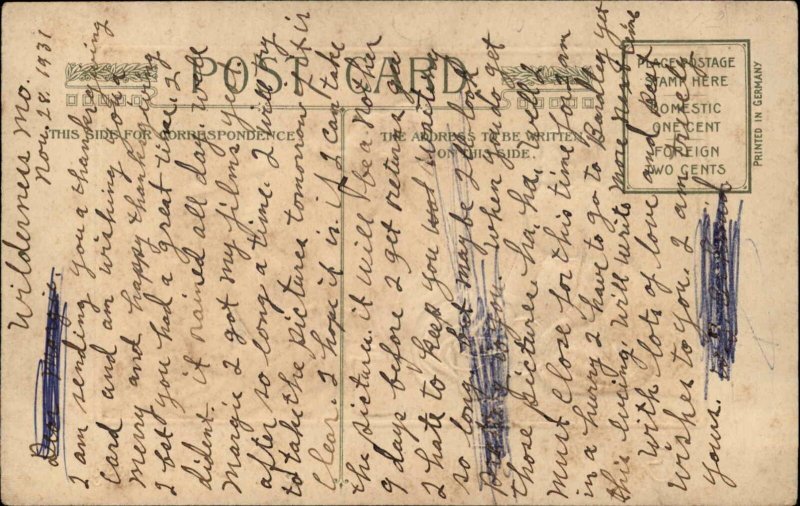 POST CARD
THIS SIDE FOR CORRESPONDENCE
THE ADDRESS TO BE WRITTEN
ON THIS SIDE.
PLACE POSTAGE
STAMP HERE
DOMESTIC
ONE CENT
FOREIGN
TWO CENTS
PRINTED IN GERMANY
Wilderness Mo.
Nov. 28. 1931
Dear
I am sending you a thanksgiving
card and am wishing you a
merry and happy thanksgiving
I bet you had a great time. I
dident. it rained all day. Well
Margie I got my films yet
after so long a time. I will try
to take the pictures tomorrow if it is
clear. I hope it is. if I can take
the picture. it will be a nother
9 days before I get returns gra
I hate to keep you waiting
so long. but maybe I'll look
when you do get
those pictures ha. ha. Well
must close for this time for I am
in a hurry I have to go to yet
this evening. Will write more next time
With lots of love and best
wishes to you. I am
yours.